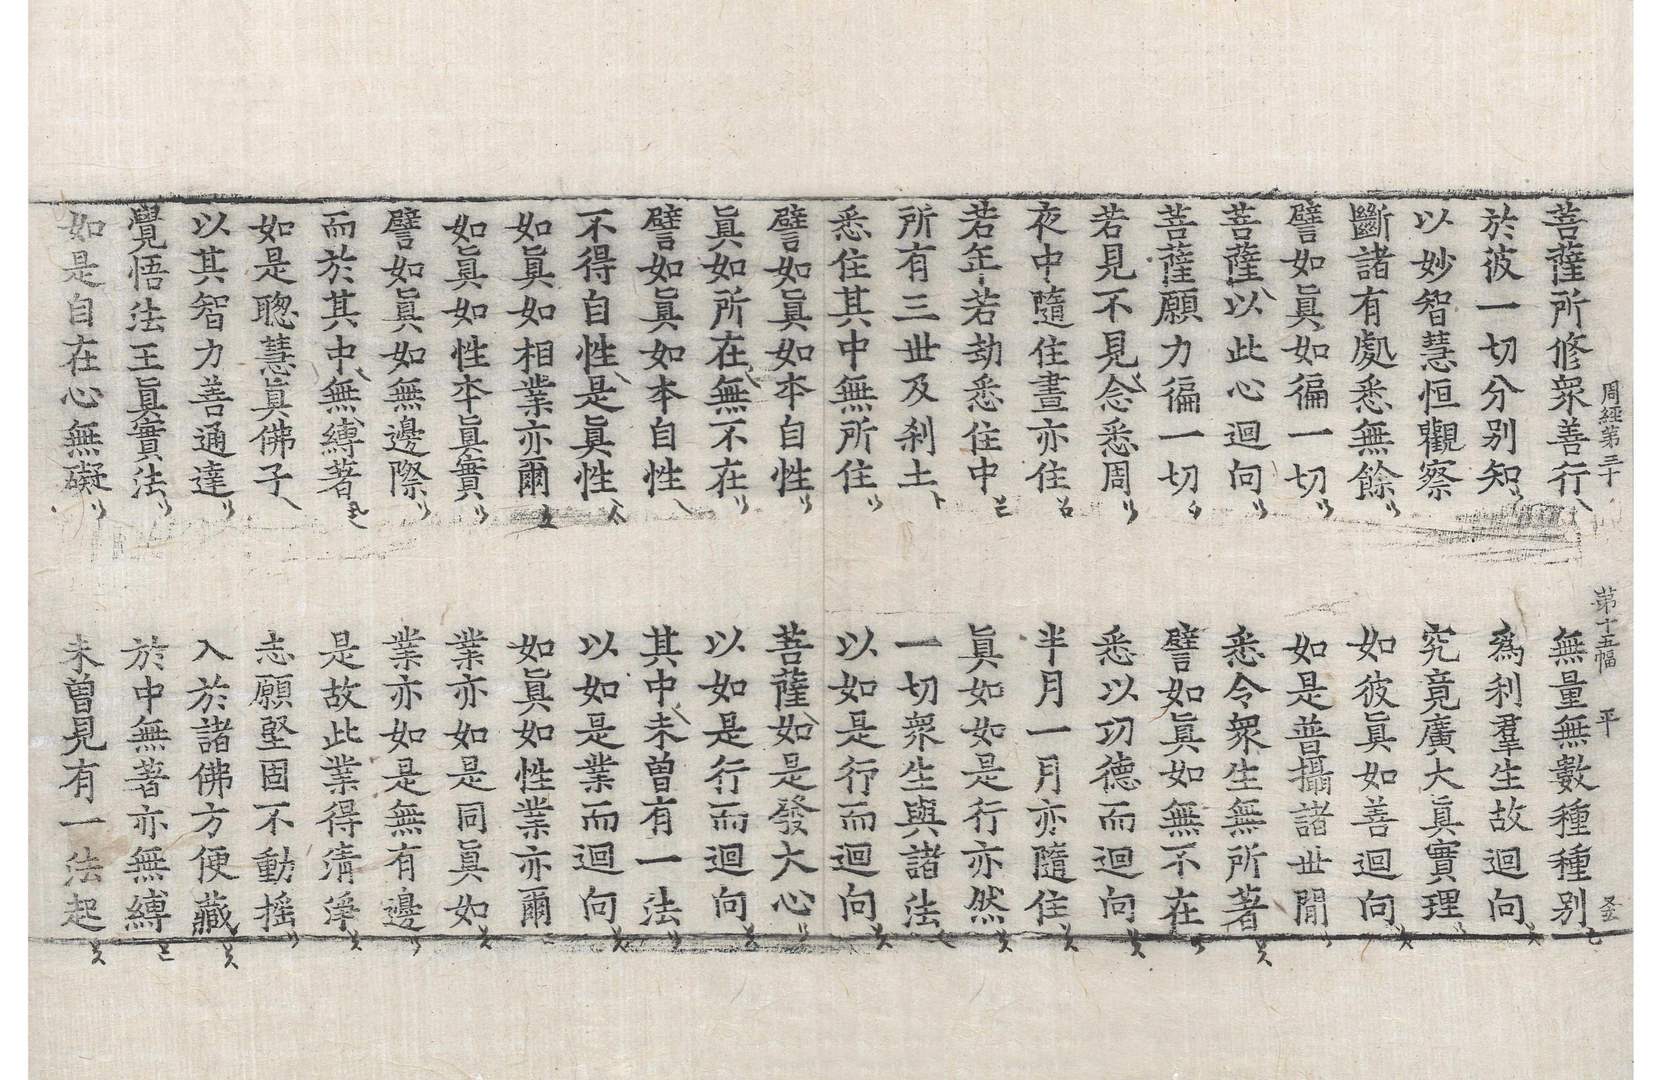 周經第三十 第十五幅 平
菩薩所修衆善行 無量無數種種別
於彼一切分別知 爲利羣生故迴向
以妙智慧恒觀察 究竟廣大眞實理
斷諸有處悉無餘 如彼眞如善迴向
譬如眞如徧一切 如是普攝諸世間
菩薩以此心迴向 悉令衆生無所著
菩薩願力徧一切 譬如眞如無不在
若見不見念悉周 悉以功德而迴向
夜中隨住晝亦住 半月一月亦隨住
若年若劫悉住中 眞如如是行亦然
所有三世及刹土 一切衆生與諸法
悉住其中無所住 以如是行而迴向
譬如眞如本自性 菩薩如是發大心
眞如所在無不在 以如是行而迴向
譬如眞如本自性 其中未曾有一法
不得自性是眞性 以如是業而迴向
如眞如相業亦爾 如眞如性業亦爾
如眞如性本眞實 業亦如是同眞如
譬如眞如無邊際 業亦如是無有邊
而於其中無縛著 是故此業得淸淨
如是聰慧眞佛子 志願堅固不動搖
以其智力善通達 入於諸佛方便藏
覺悟法王眞實法 於中無著亦無縛
如是自在心無礙 未曾見有一法起